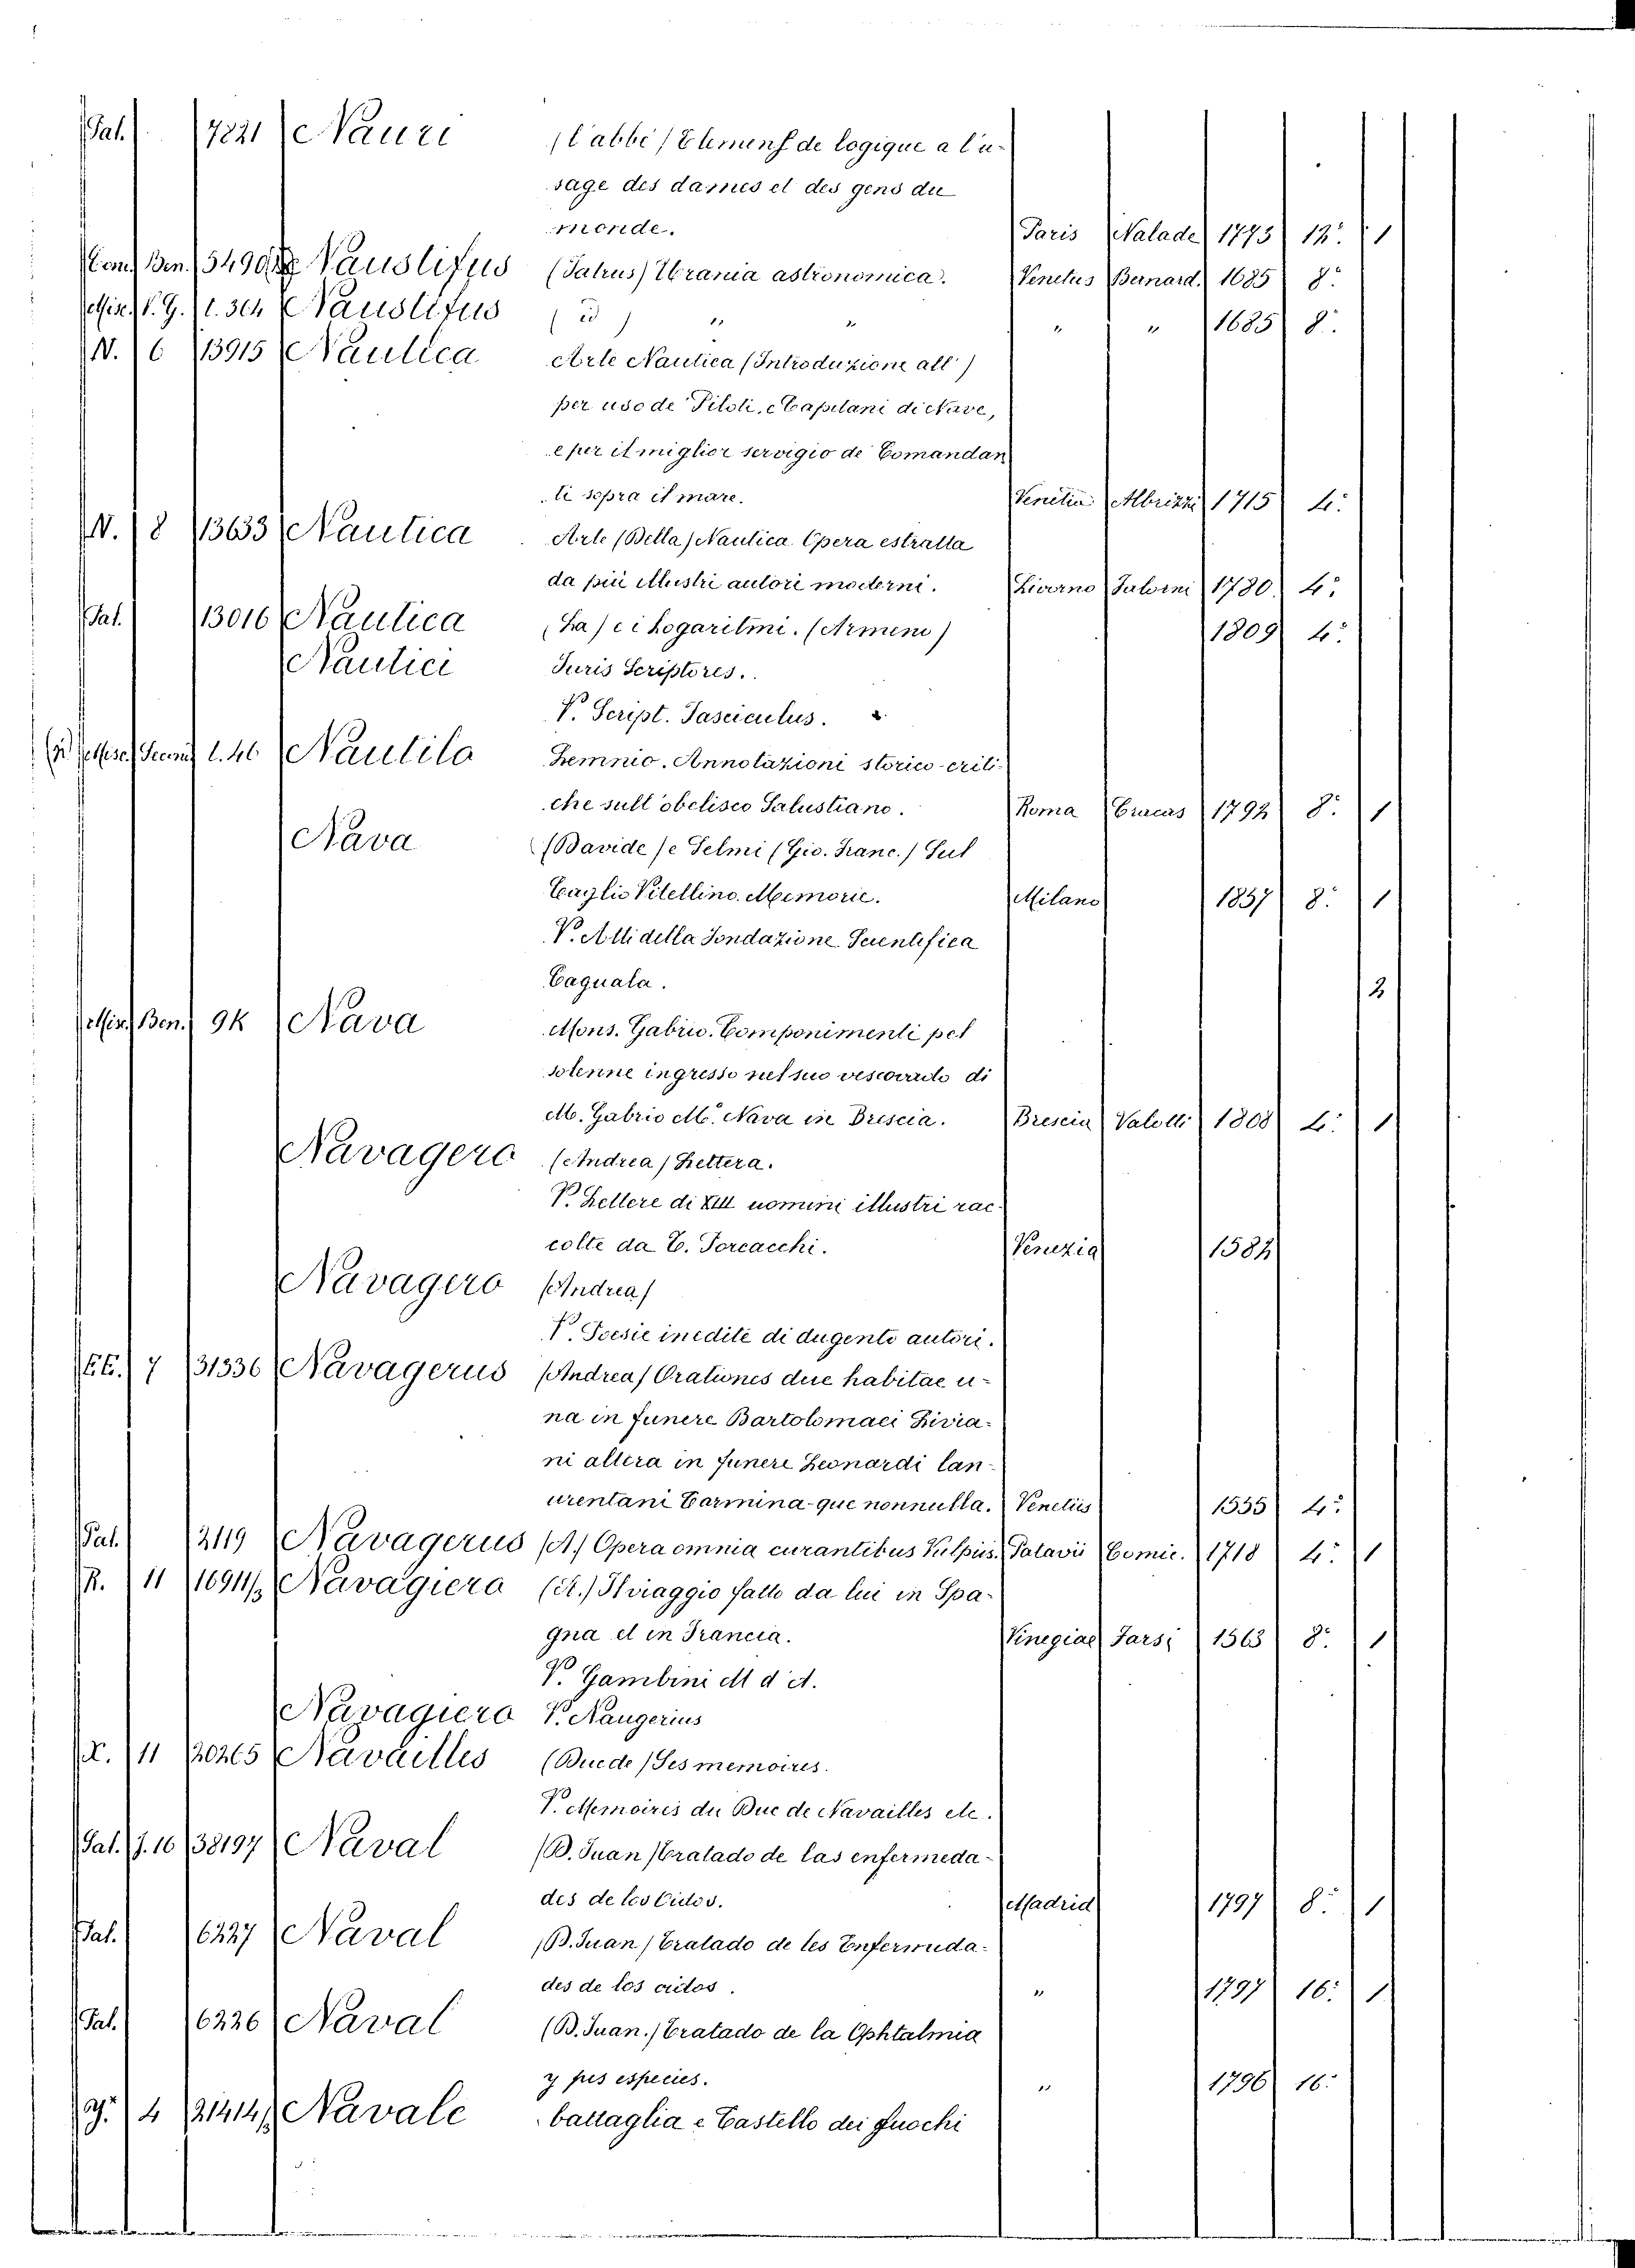 Pal. 7821 Nauri (l'abbé) Elemens de logique a l'u-
sage des dames et des gens du
monde. Paris Nalade 1773 12.° 1
Com. Ben. 5490 Naustifus (Patrus) Urania astronomica. Venetus Bernard. 1685 8.°
Misc. V. G. t. 304 Naustifus ( id ) " " " " 1685 8.°
N. 6 13915 Nautica Arte Nautica (Introduzione all')
per uso de Piloti, e Capitani di Nave,
e per il miglior servigio de Comandan
ti sopra il mare. Venetia Albrizzi 1715 4.°
N. 8 13633 Nautica Arte (Della) Nautica Opera estratta
da più illustri autori moderni. Livorno Falorni 1780 4.°
Pal. 13016 Nautica (La) e i Logaritmi. (Armeno) 1809 4.°
Nautici Juris Scriptores.
V. Script. Fasciculus.
Misc. t. 46 Nautilo Lemnio. Annotazioni storico-criti-
che sull'obelisco Salustiano. Roma Cracas 1792 8.° 1
Nava (Davide) e Selmi (Gio. Franc.) Sul
Caglio Vitellino. Memorie. Milano 1857 8.° 1
V. Atti della Fondazione Scientifica
Cagnala. 2
Misc. Ben. 9K Nava Mons. Gabrio. Componimenti pel
solenne ingresso nel suo vescovato di
M. Gabrio M.ª Nava in Brescia. Brescia Valotti 1808 4.° 1
Navagero (Andrea) Lettera.
V. Lettere di XIII uomini illustri rac-
colte da T. Porcacchi. Venezia 1582
Navagero (Andrea)
V. Poesie inedite di dugento autori.
EE. 7 31336 Navagerus (Andrea) Orationes due habitae u-
na in funere Bartolomaei Livia-
ni altera in funere Leonardi lan-
urentani Carmina-que nonnulla. Venetiis 1555 4.°
Pal. 2119 Navagerus (A.) Opera omnia curantibus Vulpiis. Patavii Comic. 1718 4.° 1
R. 11 16911/2 Navagiero (A.) Il viaggio fatto da lui in Spa-
gna et in Francia. Vinegiae Farsi 1563 8.° 1
V. Gambini M d'A.
Navagiero V. Naugerius
X. 11 20265 Navailles (Duc de) Ses memoires.
V. Memoires du Duc de Navailles etc.
Pal. J. 16 38197 Naval (D. Juan) Tratado de las enfermeda-
des de los Oidos. Madrid 1797 8.° 1
Pal. 6227 Naval (D. Juan) Tratado de les Enfermeda-
des de los cutos. " 1797 16.° 1
Pal. 6226 Naval (D. Juan.) Tratado de la Ophtalmia
y sus especies. " 1796 16.°
G. 4 21414/ Navale battaglia e Castello dei fuochi